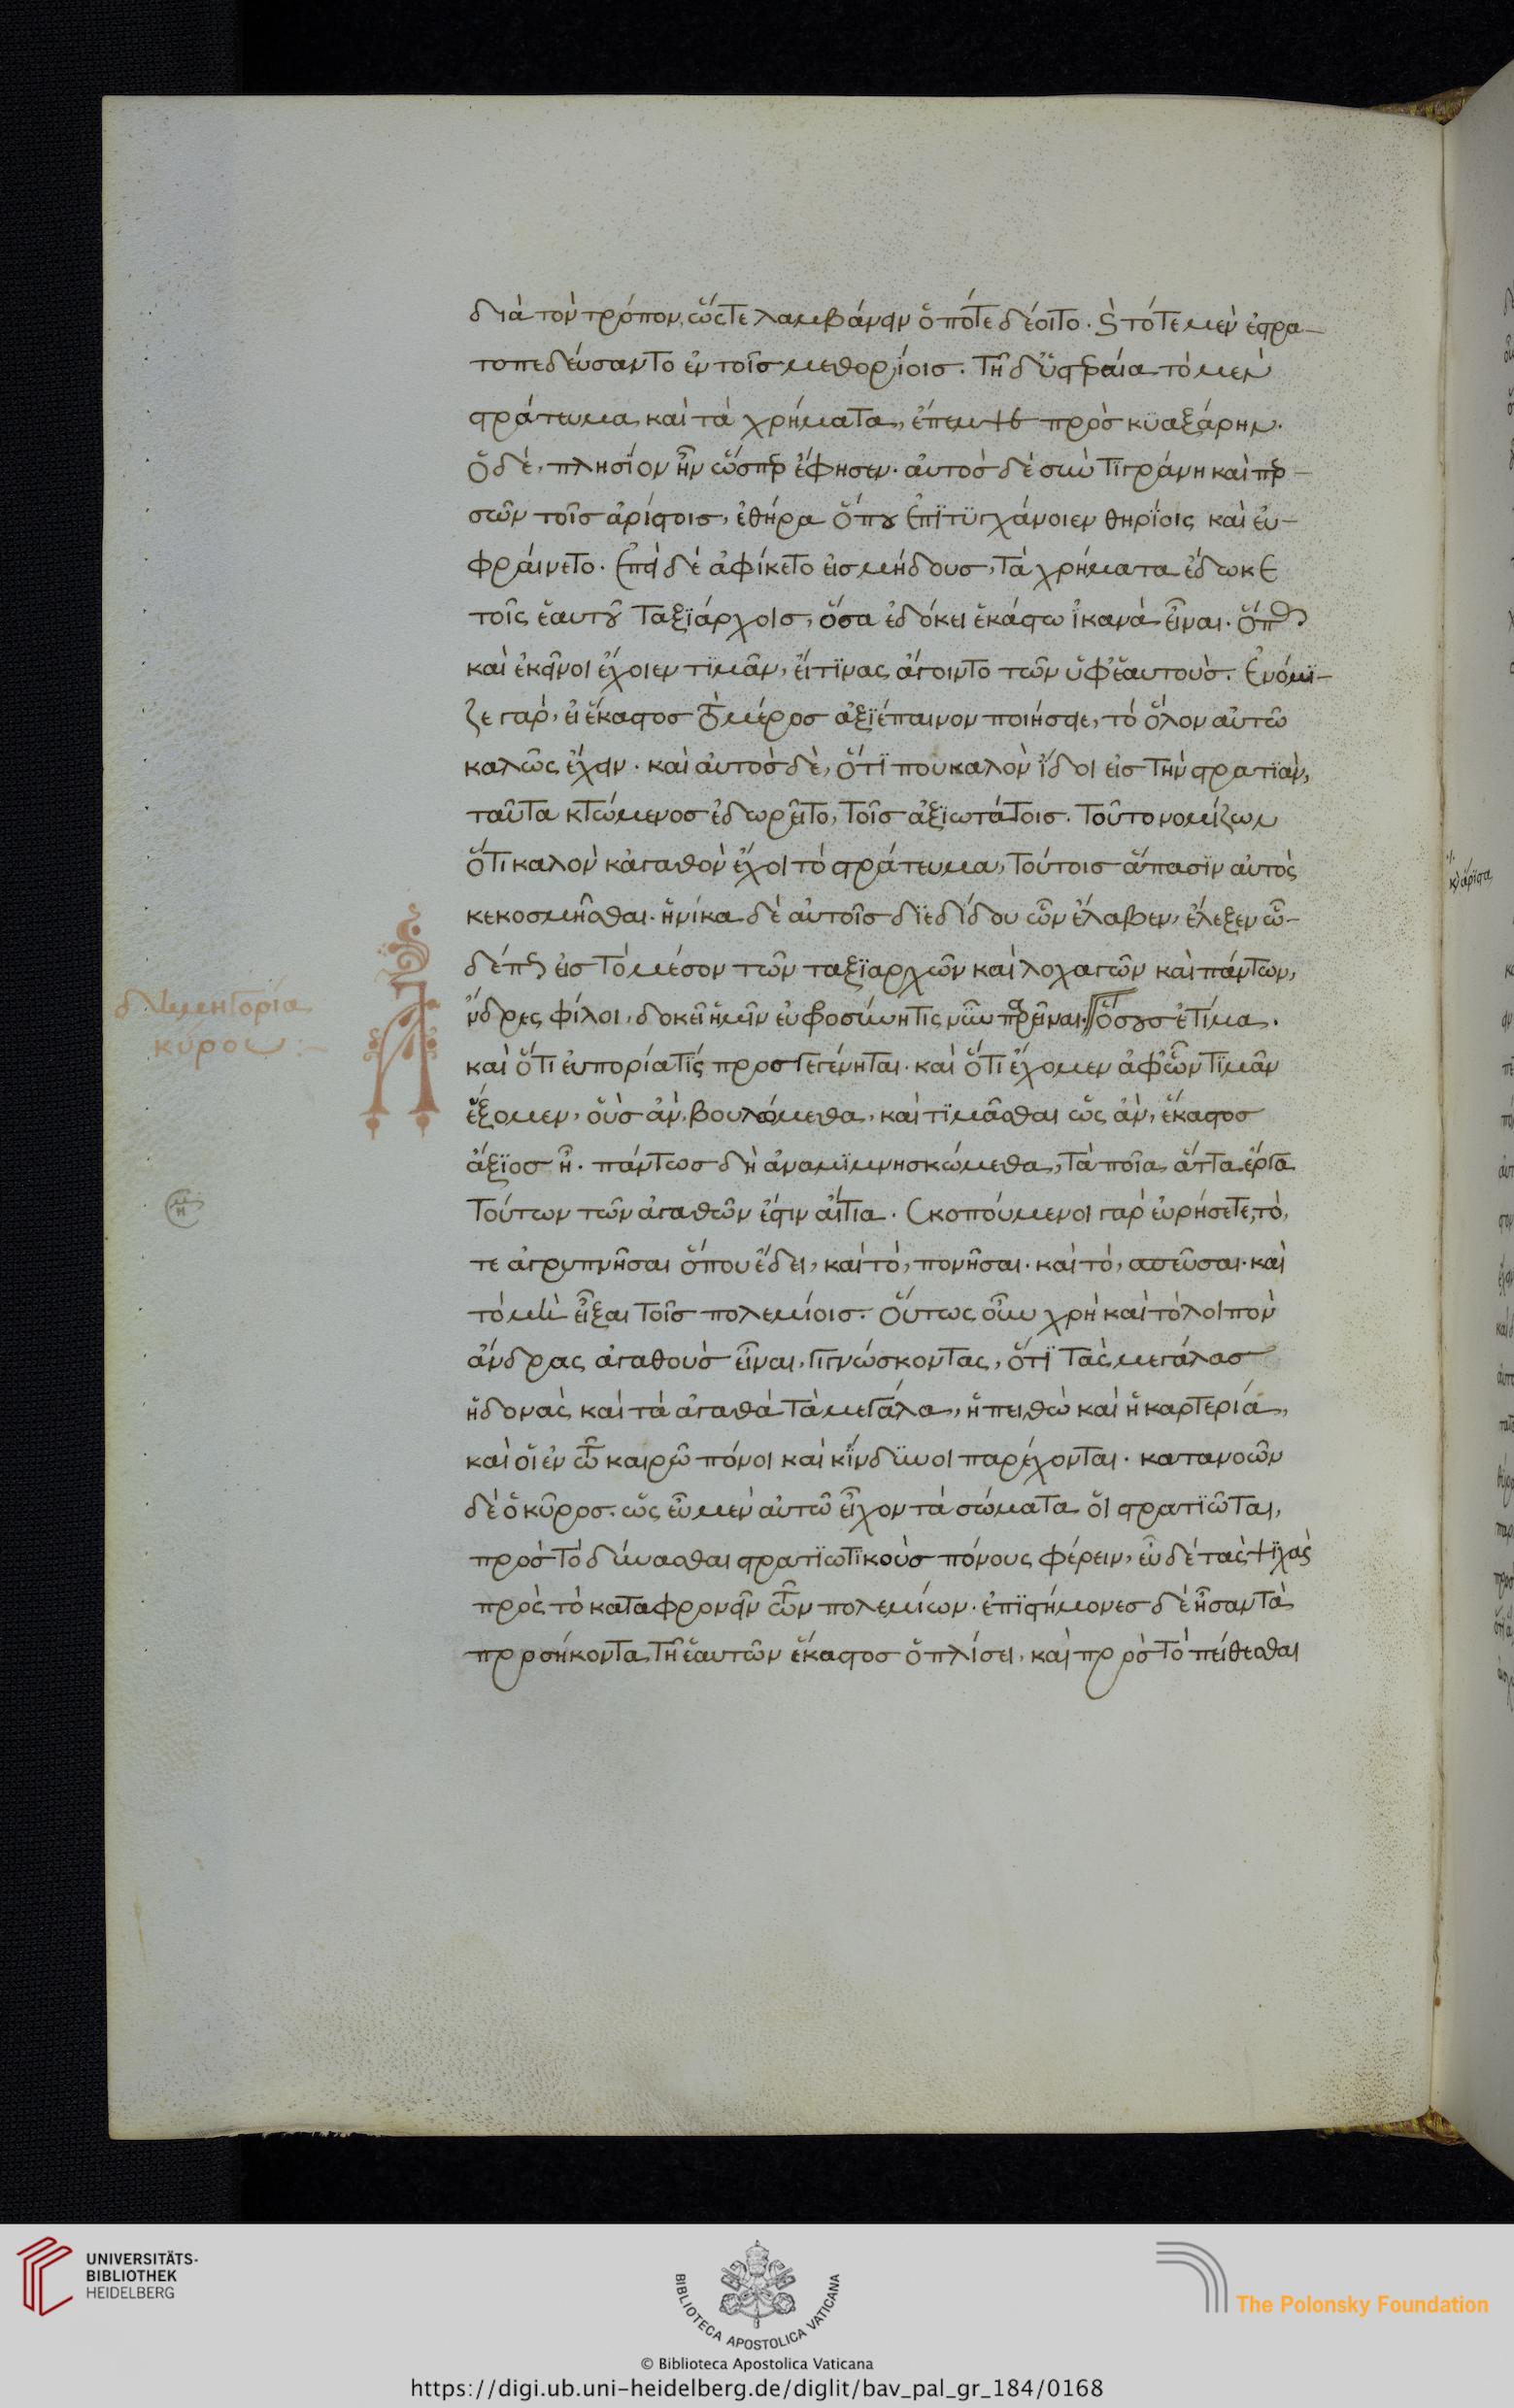 διὰ τὸν τρόπον, ὥστε λαμβάνειν ὁπότε δέοιτο. καὶ τότε μὲν ἐστρα-
τοπεδεύσαντο ἐν τοῖς μεθορίοις. τῇ δ' ὑστεραία τὸ μὲν
στράτευμα καὶ τὰ χρήματα, ἔπεμψε πρὸς κυαξάρην.
ὁ δὲ, πλησίον ἦν ὥσπερ ἔφησεν. αὐτὸς δὲ σὺν τιγράνη καὶ περ-
σῶν τοῖς ἀρίστοις, ἐθήρα ὅπου ἐπιτυγχάνοιεν θηρίοις καὶ εὐ-
φραίνετο. ἐπεὶ δὲ ἀφίκετο εἰς μήδους, τὰ χρήματα ἔδωκε
τοῖς ἑαυτοῦ ταξιάρχοις, ὅσα ἐδόκει ἑκάστω ἱκανὰ εἶναι. ὅπως
καὶ ἐκεῖνοι ἔχοιεν τιμᾶν, εἴ τινας ἄγοιντο τῶν ὑφ' ἑαυτοὺς. ἐνόμι-
ζε γὰρ, εἰ ἕκαστος τὸ μέρος ἀξιέπαινον ποιήσειε, τὸ ὅλον αὐτῶ
καλῶς ἔχειν. καὶ αὐτὸς δὲ, ὅτι που καλὸν ἴδοι εἰς τὴν στρατιὰν,
ταῦτα κτώμενος ἐδωρεῖτο, τοῖς ἀξιωτάτοις. τοῦτο νομίζων
ὅτι καλὸν κἀγαθὸν ἔχοι τὸ στράτευμα, τούτοις ἅπασιν αὐτὸς
κεκοσμῆσθαι. ἡνίκα δὲ αὐτοῖς διεδίδου ὧν ἔλαβεν, ἔλεξεν ὧ-
δέ πως εἰς τὸ μέσον τῶν ταξιαρχῶν καὶ λοχαγῶν καὶ πάντων,
ὅσους ἐτίμα.
δημηγορία
κύρου:-
Ἄνδρες φίλοι, δοκεῖ ἡμῖν εὐφροσύνη τις νῦν παρεῖναι.
καὶ ὅτι εὐπορία τίς προσγεγένηται. καὶ ὅτι ἔχομεν ἀφ' ὧν τιμᾶν
ἕξομεν, οὓς ἂν βουλώμεθα, καὶ τιμᾶσθαι ὡς ἂν, ἕκαστος
ἄξιος ἦ. πάντως δὴ ἀναμιμνησκώμεθα, τὰ ποῖα ἄττα ἔργα
τούτων τῶν ἀγαθῶν ἐστιν αἴτια. σκοπούμενοι γὰρ εὑρήσετε, τό,
τε ἀγρυπνῆσαι ὅπου ἔδει, καὶ τὸ, πονῆσαι. καὶ τὸ, σπεῦσαι. καὶ
τὸ μὴ εἶξαι τοῖς πολεμίοις. οὕτως οὖν χρὴ καὶ τὸ λοιπὸν
ἄνδρας ἀγαθοὺς εἶναι, γιγνώσκοντας, ὅτι τὰς μεγάλας
ἡδονὰς καὶ τὰ ἀγαθὰ τὰ μεγάλα, ἡ πειθὼ καὶ ἡ καρτερία,
καὶ οἱ ἐν τῶ καιρῶ πόνοι καὶ κίνδυνοι παρέχονται. κατανοῶν
δὲ ὁ κῦρος. ὡς εὖ μὲν αὐτῶ εἶχον τὰ σώματα οἱ στρατιῶται,
πρὸς τὸ δύνασθαι στρατιωτικοὺς πόνους φέρειν, εὖ δὲ τὰς ψυχὰς
πρὸς τὸ καταφρονεῖν τῶν πολεμίων. ἐπιστήμονες δὲ ἦσαν τὰ
προσήκοντα τῇ ἑαυτῶν ἕκαστος ὁπλίσει, καὶ πρὸς τὸ πείθεσθαι
UNIVERSITÄTS-
BIBLIOTHEK
HEIDELBERG
BIBLIOTECA APOSTOLICA VATICANA
The Polonsky Foundation
© Biblioteca Apostolica Vaticana
https://digi.ub.uni-heidelberg.de/diglit/bav_pal_gr_184/0168